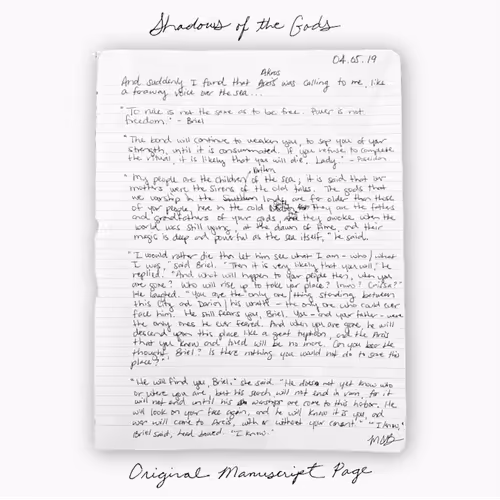 Shadows of the Gods
04.05.19
Akros
And suddenly I found that Areis was calling to me, like
a faraway voice over the sea...
"To rule is not the same as to be free. Power is not
freedom." - Briel
"The bond will continue to weaken you, to sap you of your
strength, until it is consummated. If you refuse to complete
the ritual, it is likely that you will die, Lady."
"My people are the children of the sea; it is said that our
mothers were the Sirens of the old tales. The gods that
we worship in the Southern lands are far older than these
of your people, here in the cold they are the fathers
and grandfathers of your gods, and they awoke when the
world was still young, at the dawn of time, and their
magic is deep and powerful as the sea itself," he said.
"I would rather die than let him see what I am - who/what
I was," said Briel. "Then it is very likely that you will," he
replied. "And what will happen to your people then, when you
are gone? Who will rise up to take your place?
He laughed. "You are the only one/thing standing between
this City and his wrath - the only one who could ever
face him. He still fears you, Briel. You - and your father - were
the only ones he ever feared. And when you are gone he will
descend upon this place like a great typhoon, and the Areis
that you knew and loved will be no more. Can you bear the
thought, Briel? Is there nothing you would not do to save this
place?"
"He will find you, Briel." she said. "He does not yet know who
or where you are, but his search will not end in vain, for it
will not end until his warships are come to this harbor. He
will look on your face again, and he will know it is you, and
war will come to Areis, with or without your consent." "I know,"
Briel said, head bowed. "I know."
Original Manuscript Page